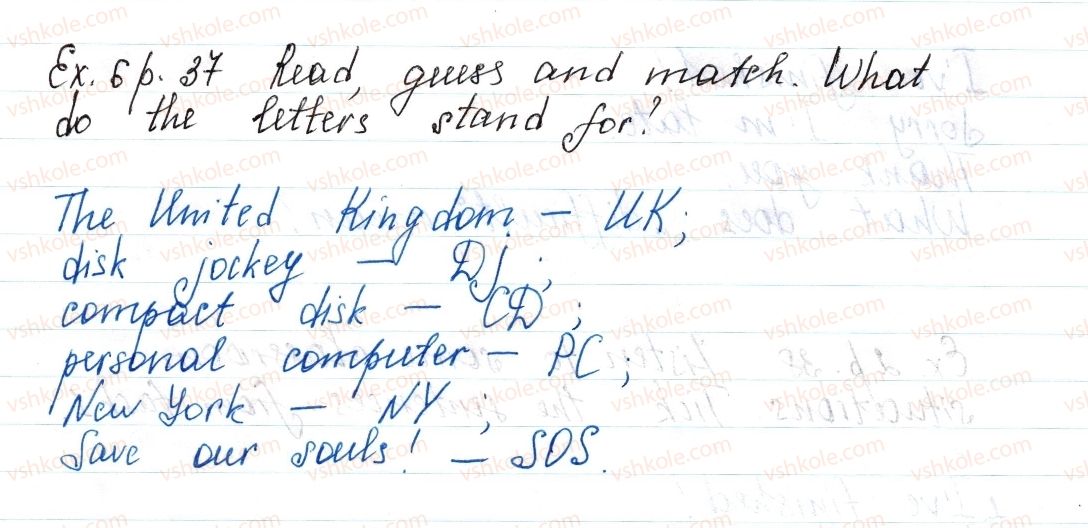 Ex. 6 p. 37 Read, guess and match. What
do the letters stand for?
The United Kingdom – UK;
disk jockey – DJ;
compact disk – CD;
personal computer – PC;
New York – NY;
Save our souls! – SOS.
vshkole.com